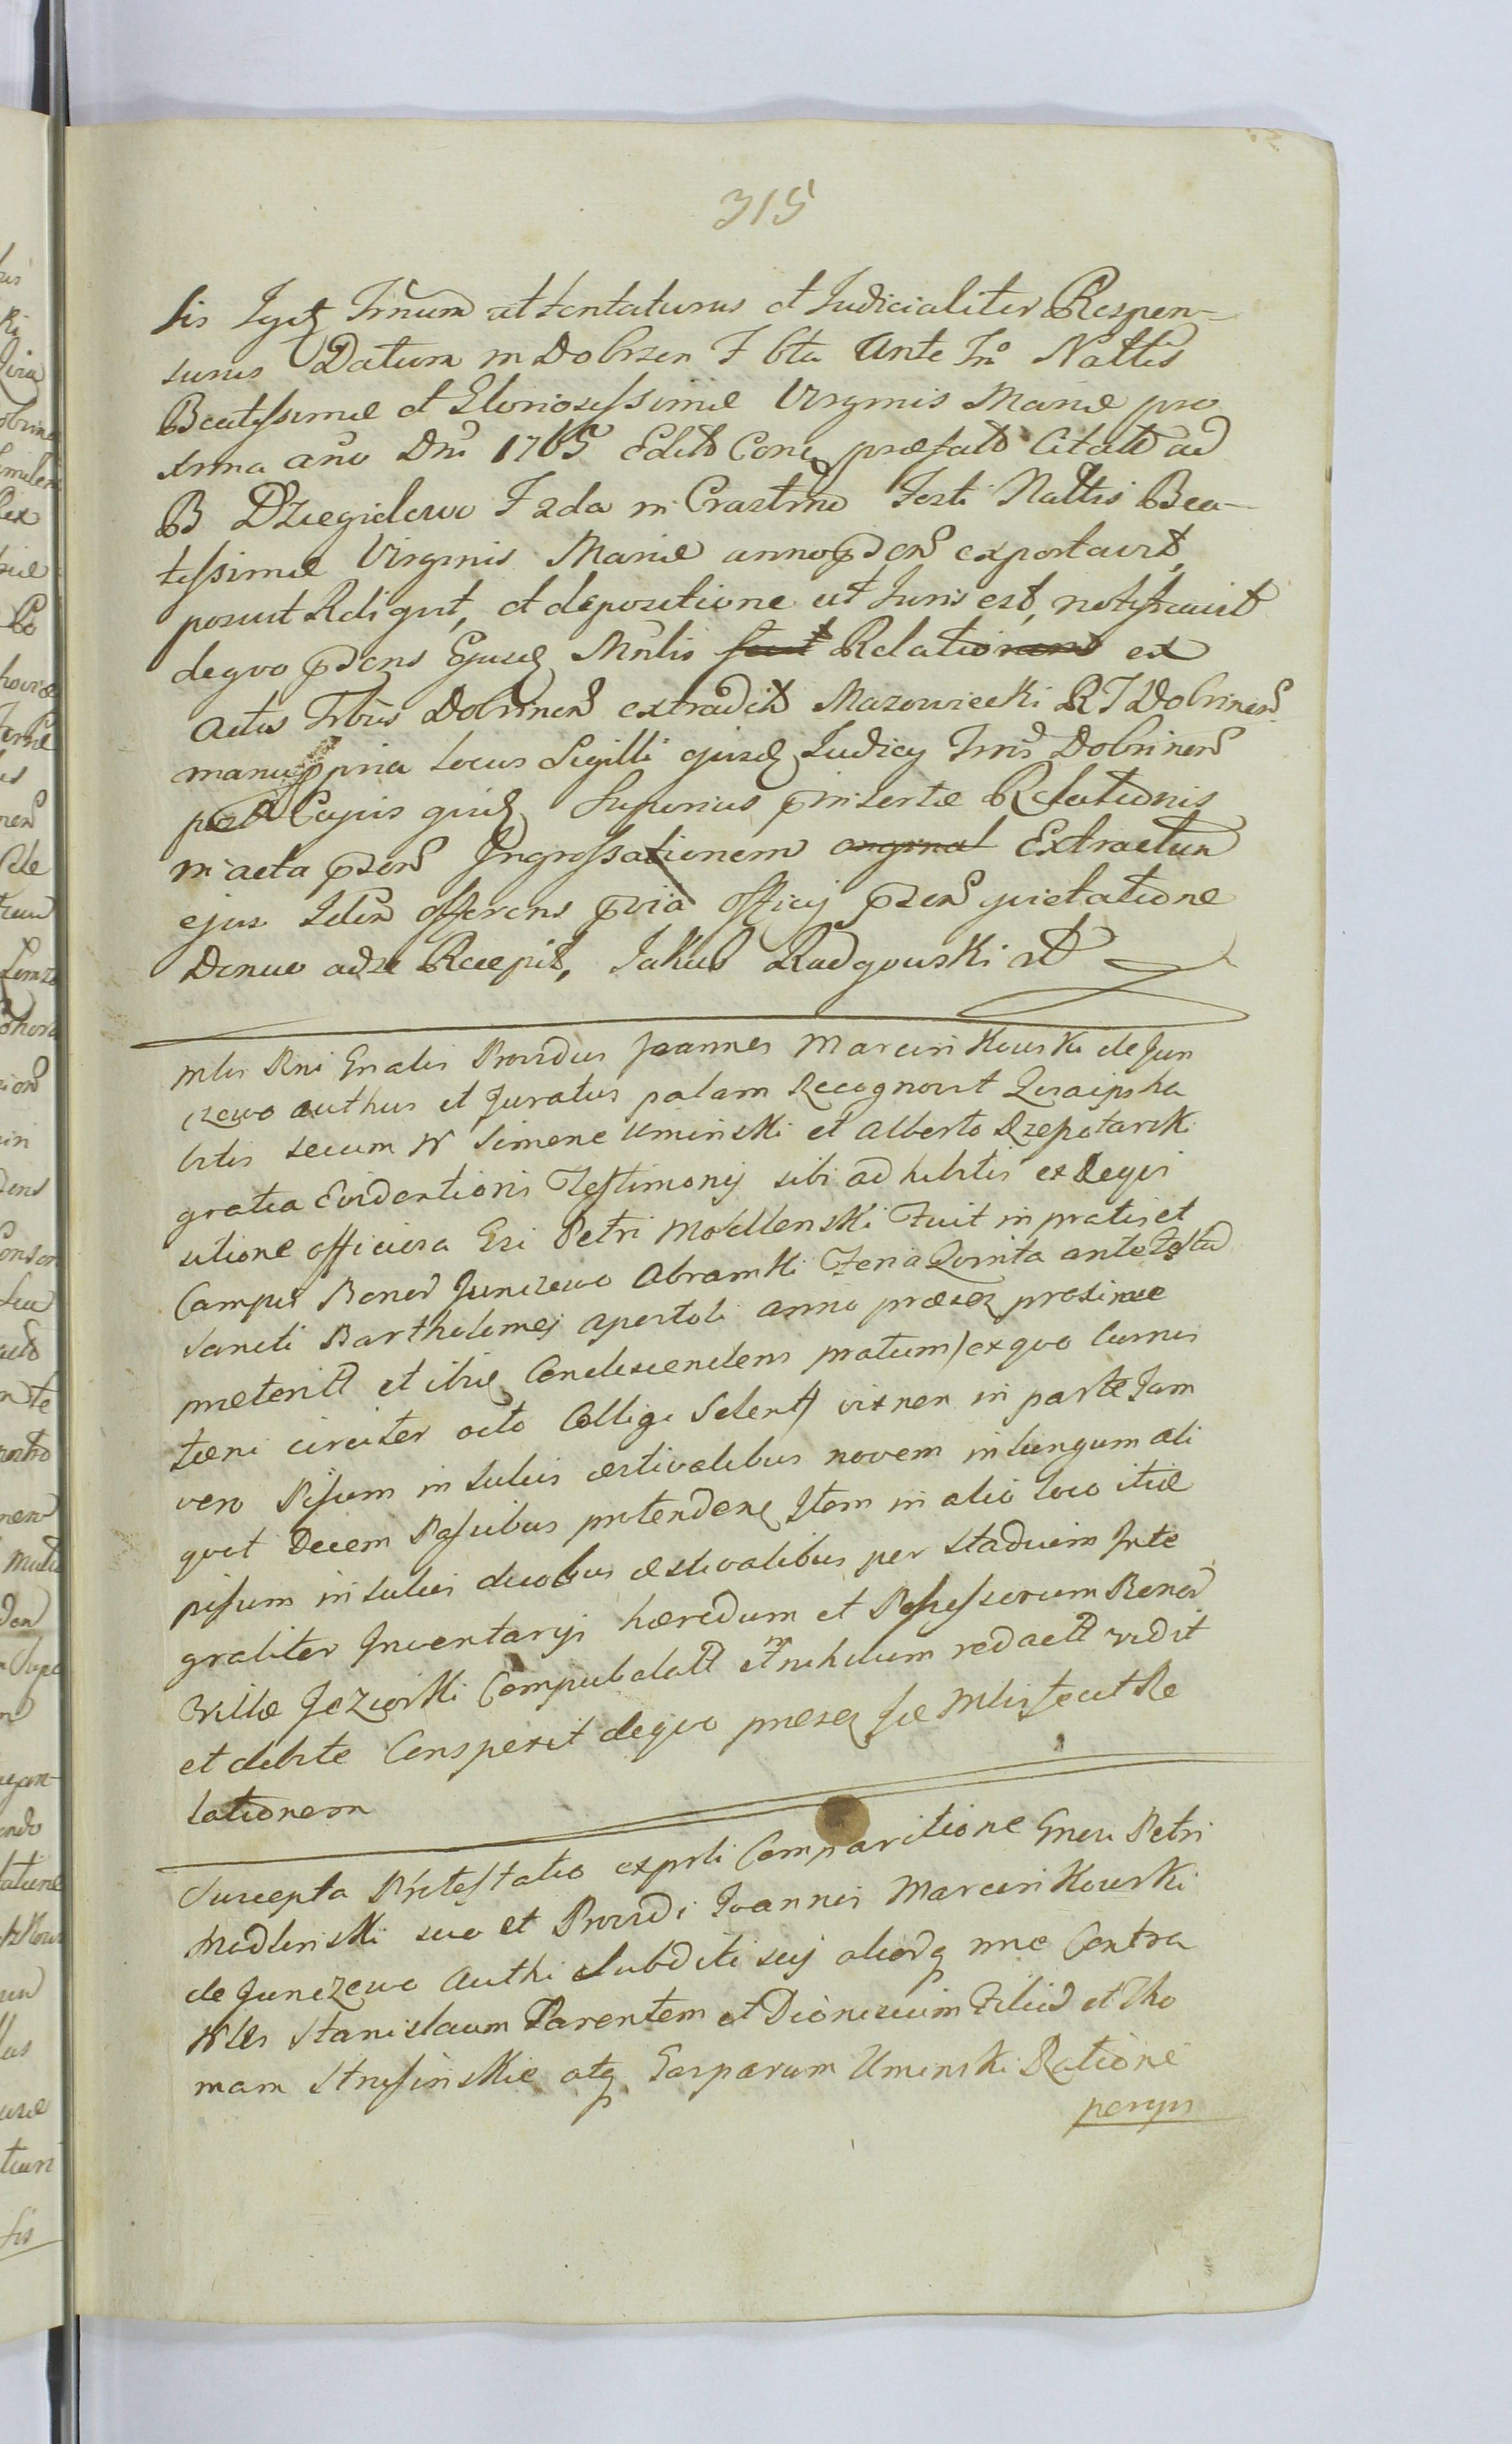 315
sis Igitur Trnum attentaturus et Iudicialiter Respon-
surus Datum in Dobrzen F 6ta Ante Fm Nattis
Beatissimae et Gloriosissimae Virginis Mariae pro
xima ano Dni 1765 Edit Conq praefat Citatt ad
B Dziegielewo F 2da in Crastino Festi Nattis Bea-
tissimae Virginis Mariae anno psen exportavit
posuit Reliquit, et depositione ut Iuris est, notificavit
de quo psens Ejusd Mnlis Relation ex
Actis Trbus Dobrinen extradit Mazowiecki RT Dobrinen
manu ppria Locus Sigilli ejusd Iudicy Trris Dobrinen
post Cujus quid Superius pinsertae Relationis
in acta psen Ingrossationem original Extractum
ejus Iden offerens pvia officij psen quietatione
Denuo ad se Recepit, Jakub Radgowski

Mlis Rni Gnalis Providus Joannes Marcinkowski de Jun
czewo authus et Juratus palam Recognovit Quia ips ha
bitis secum N Simone Uminski et Alberto Rzepotarski
gratia Evidentioris Testimonij sibi ad hibitis ex Requi
sitione officiosa Gsi Petri Modllenski Fuit in pratis et
Campis Bonor Junczewo Abramki Feria Quinta ante Festu
Sancti Bartholomej Apostoli anno praesen proxime
praeterit et ibiq Condescendens pratum / ex quo Currus
foeni circiter octo Colligi Solent / vix non in parte Jam
vero Pisum in Sulcis aestivalibus novem in Longum ali
quot Decem Passibus protenden Item in alio loco itid
pisum in Sulcis duobus aestivalibus per Stadium Inte
graliter Inventaryi haeredum et Possessorum Bonor
Villae Jeziorki Compubulatt et in nihilum redactt vidit
et debite Consperit de quo praesen sue Mlis fecit Re
lationem

Suscepta Protestatio exprli Comparitione Gnosi Petri
Modlinski suo et Providi Joannis Marcinkowski
de Junczewo Authi Subditi sui aliorq nne Contra
Nles Stanislaum Parentem et Dionisium Filiu et Tho
mam Strusinskie atq Gasparum Uminski Ratione
persyn